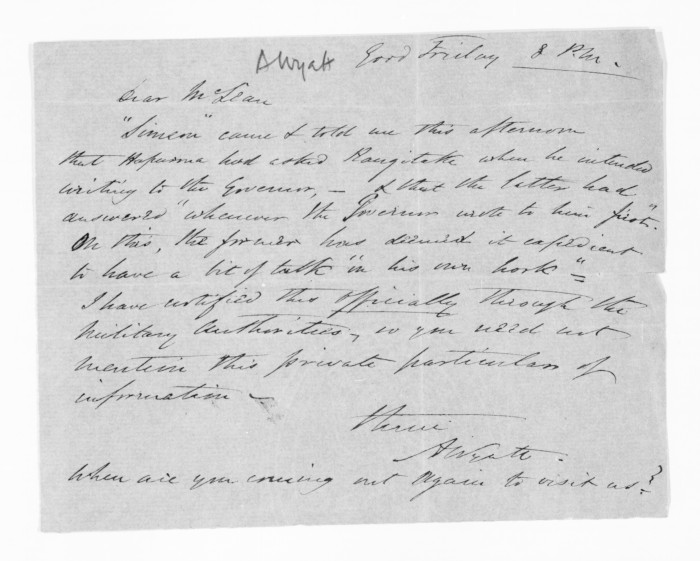 AWyatt Good Friday 8 P.M.
Dear McLean
"Simeon" came & told me this afternoon
that Hapurona had asked Rangitake when he intended
writing to the Governor, — & that the latter had
answered "whenever the Governor wrote to him first".
On this, the former has deemed it expedient
to have a bit of talk "in his own hook" =
I have notified this officially through the
Military Authorities, so you need not
mention this private particular of
information —
Thine
AWyatt.
When are you coming out again to visit us?